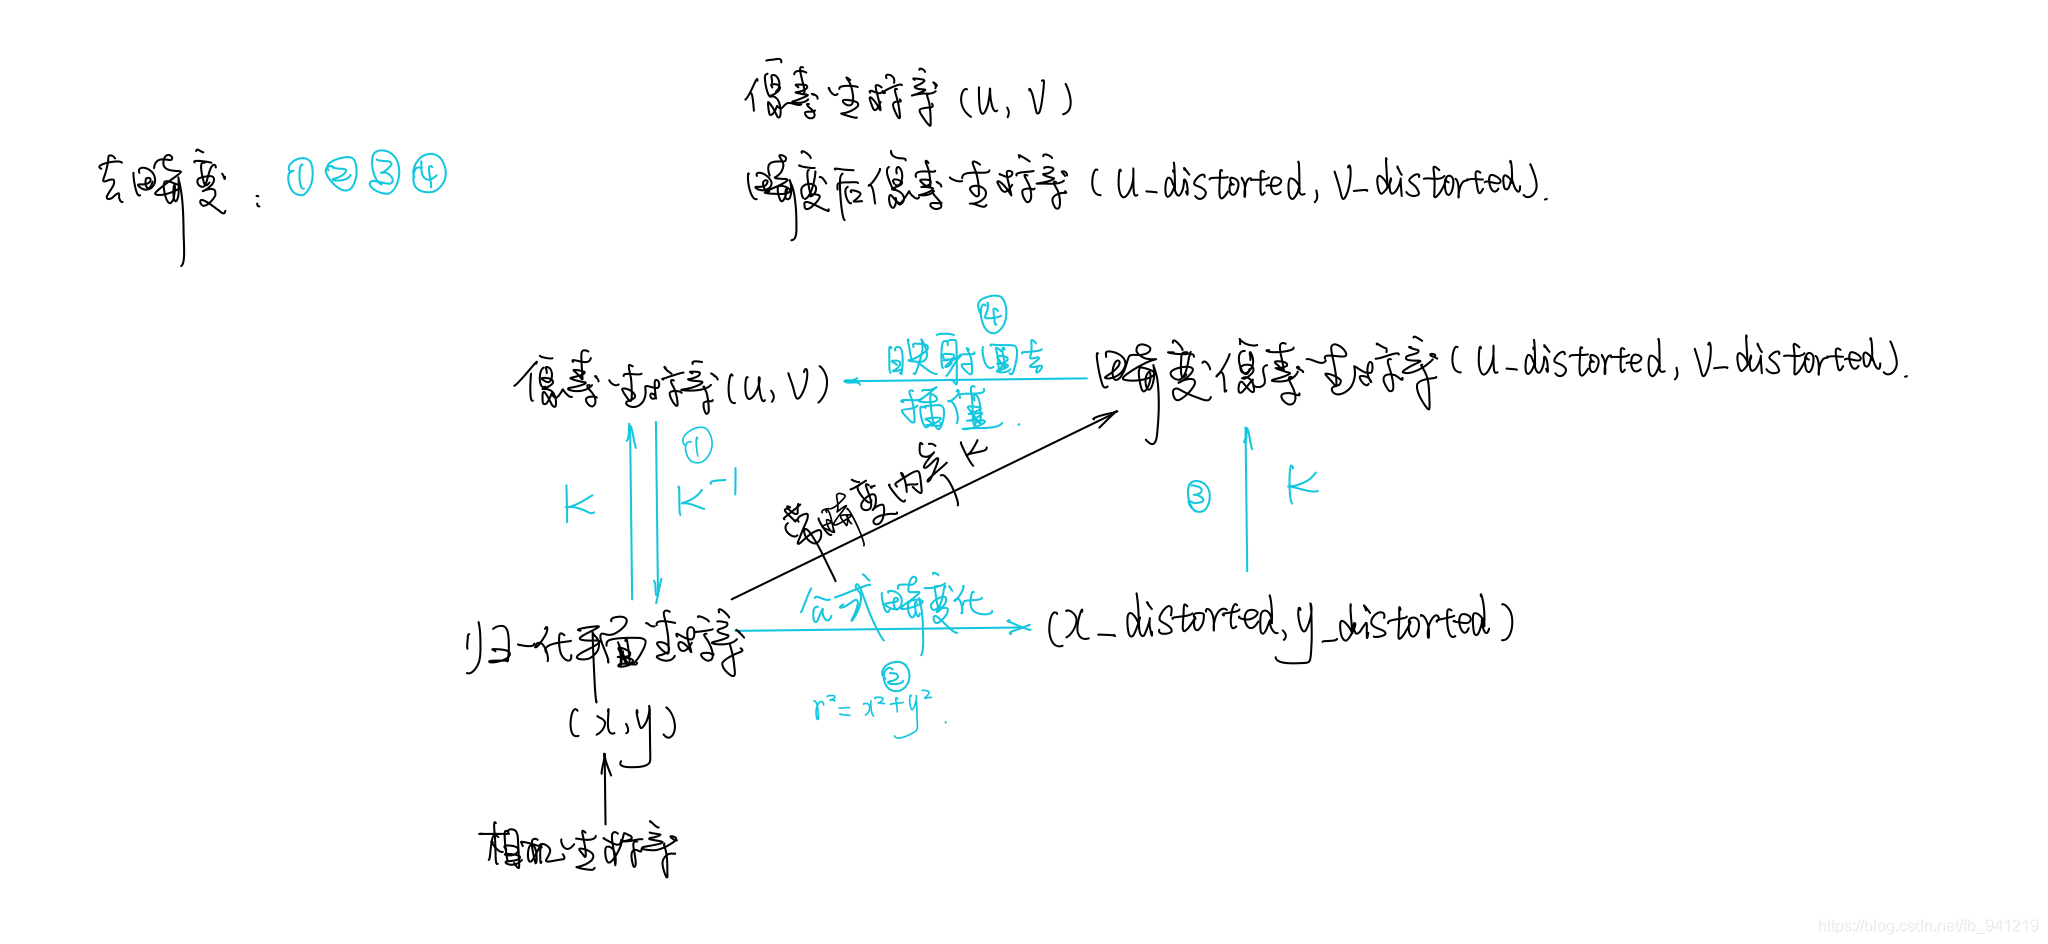 像素坐标系(u, v)
去畸变: ①②③④
畸变后像素坐标系(u_distorted, v_distorted).
④
映射回去
像素坐标系(u, v)
畸变像素坐标系(u_distorted, v_distorted).
插值.
①
K
K⁻¹
带畸变内参K
③
K
公式畸变化
归一化平面坐标系
(x_distorted, y_distorted)
②
r²=x²+y².
(x, y)
相机坐标系
https://blog.csdn.net/fb_941219